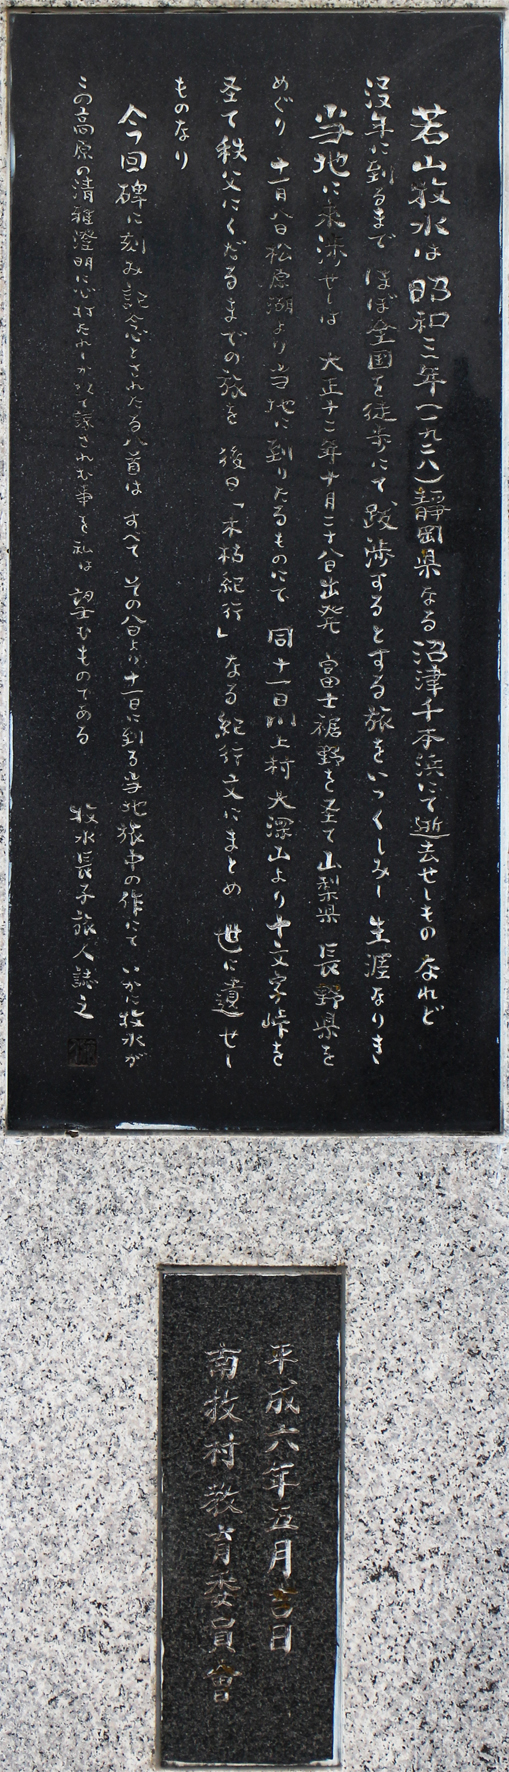 若山牧水は昭和三年(一九二八)静岡県なる沼津千本浜にて逝去せしものなれど
没年に到るまで ほぼ全国を徒歩にて跋渉するとする旅をいつくしみし生涯なりき
当地に来渉せしは 大正十二年十月二十八日出発 富士裾野を経て山梨県 長野県を
めぐり 十一月八日松原湖より当地に到りたるものにて 同十一日川上村大深山より十文字峠を
経て秩父にくだるまでの旅を 後日「木枯紀行」なる紀行文にまとめ 世に遺せし
ものなり
今回碑に刻み記念とされたる八首は すべて その八日より十一日に到る当地旅中の作にて いかに牧水が
この高原の清雅澄明に心打たれしか以て諒されむ事を私は 望むものである 牧水長子旅人誌之
平成六年五月吉日
南牧村教育委員會